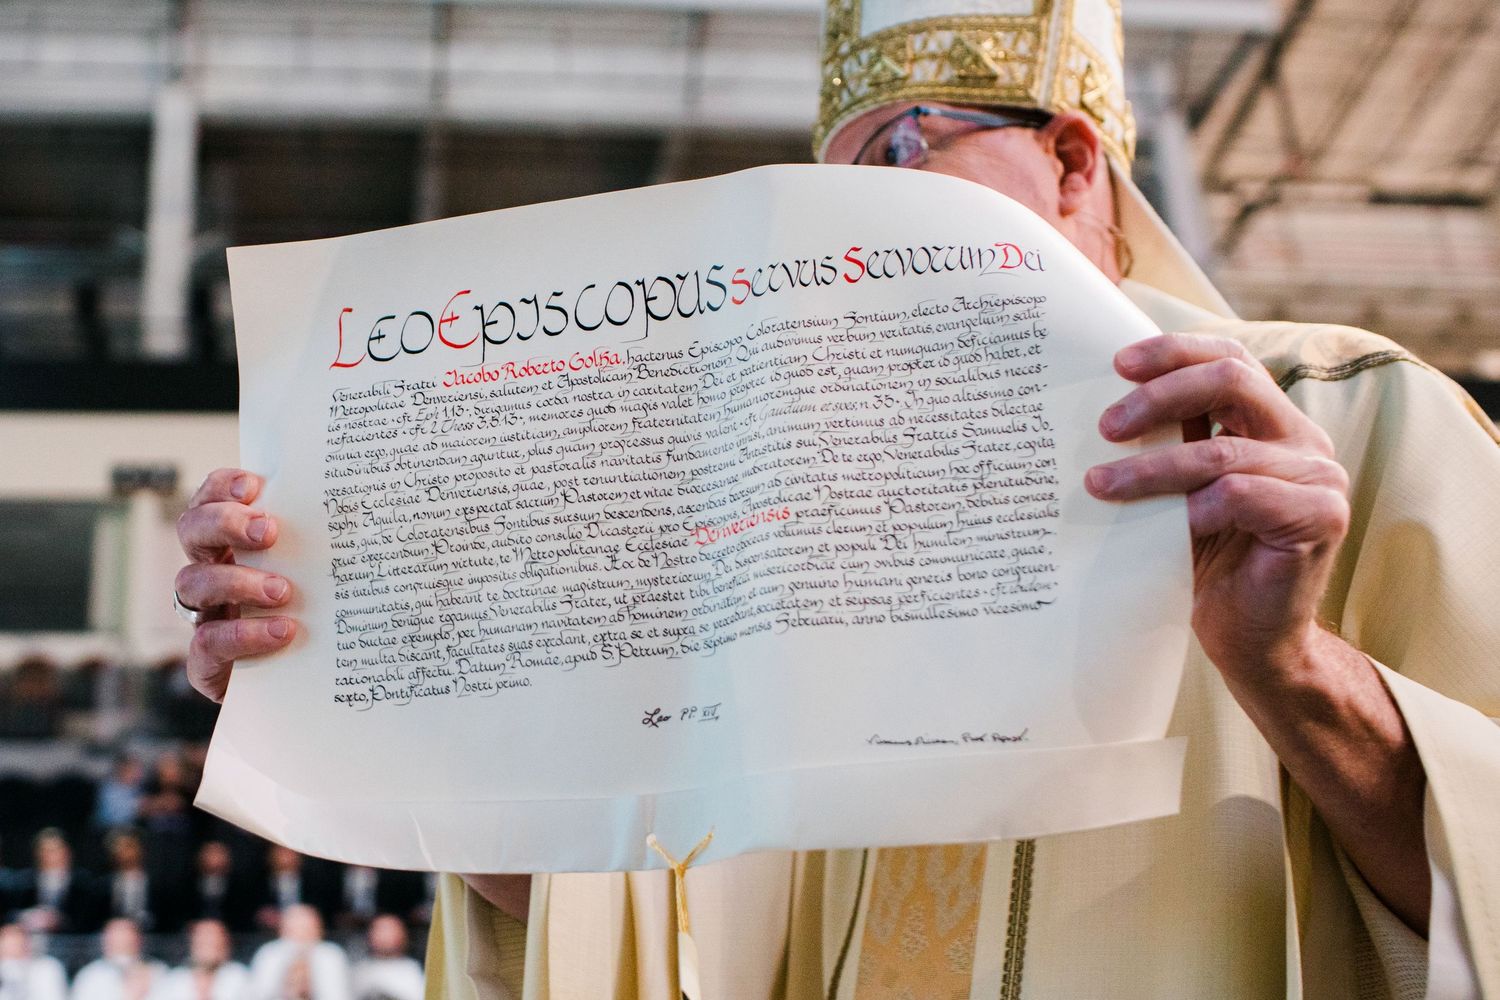 Leo Episcopus Servus Servorum Dei
Venerabili Fratri Jacobo Roberto Golka, hactenus Episcopo Coloratensium Fontium, electo Archiepiscopo
Metropolitae Denveriensi, salutem et Apostolicam Benedictionem. Qui audivimus verbum veritatis, evangelium salu-
tis nostrae · cfr Eph 1,13 ·, dirigamus corda nostra in caritatem Dei et patientiam Christi et numquam deficiamus be
nefacientes · cfr 2 Thess 3, 5.13 ·, memores quod magis valet homo propter id quod est, quam propter id quod habet, et
omnia ergo, quae ad maiorem iustitiam, ampliorem fraternitatem humanioremque ordinationem in socialibus neces-
situdinibus obtinendam aguntur, plus quam progressus quivis valent · cfr Gaudium et spes, n. 35 ·. In quo altissimo con-
versationis in Christo proposito et pastoralis navitatis fundamento innisi, animum vertimus ad necessitates dilectae
Nobis Ecclesiae Denveriensis, quae, post renuntiationem postremi Antistitis sui Venerabilis Fratris Samuelis Jo-
sephi Aquila, novum exspectat sacrum Pastorem et vitae dioecesanae moderatorem. De te ergo, Venerabilis Frater, cogita
mus, qui, de Coloratensibus Fontibus sursum descendens, ascendas deorsum ad civitatis metropoliticam hoc officium con
grue exercendum. Proinde, audito consilio Dicasterii pro Episcopis, Apostolicae Nostrae auctoritatis plenitudine,
harum Litterarum virtute, te Metropolitanae Ecclesiae Denveriensis praeficimus Pastorem, debitis conces
sis iuribus congruisque impositis obligationibus. Hoc de Nostro decreto edoceas volumus clerum et populum huius ecclesialis
communitatis, qui habeant te doctrinae magistrum, mysteriorum Dei dispensatorem et populi Dei humilem ministrum.
Dominum benigne rogamus, Venerabilis Frater, ut praestet tibi beneficia misericordiae cum ovibus communicare, quae,
tuo ductae exemplo, per humanam navitatem ad hominem ordinatam et cum genuino humani generis bono congruen-
tem multa discant, facultates suas excolant, extra se et supra se procedant, societatem et seipsas perficientes · cfr ibidem ·
rationabili affectu. Datum Romae, apud S. Petrum, die septimo mensis Februarii, anno bismillesimo vicesimo
sexto, Pontificatus Nostri primo.
Leo PP. XIV